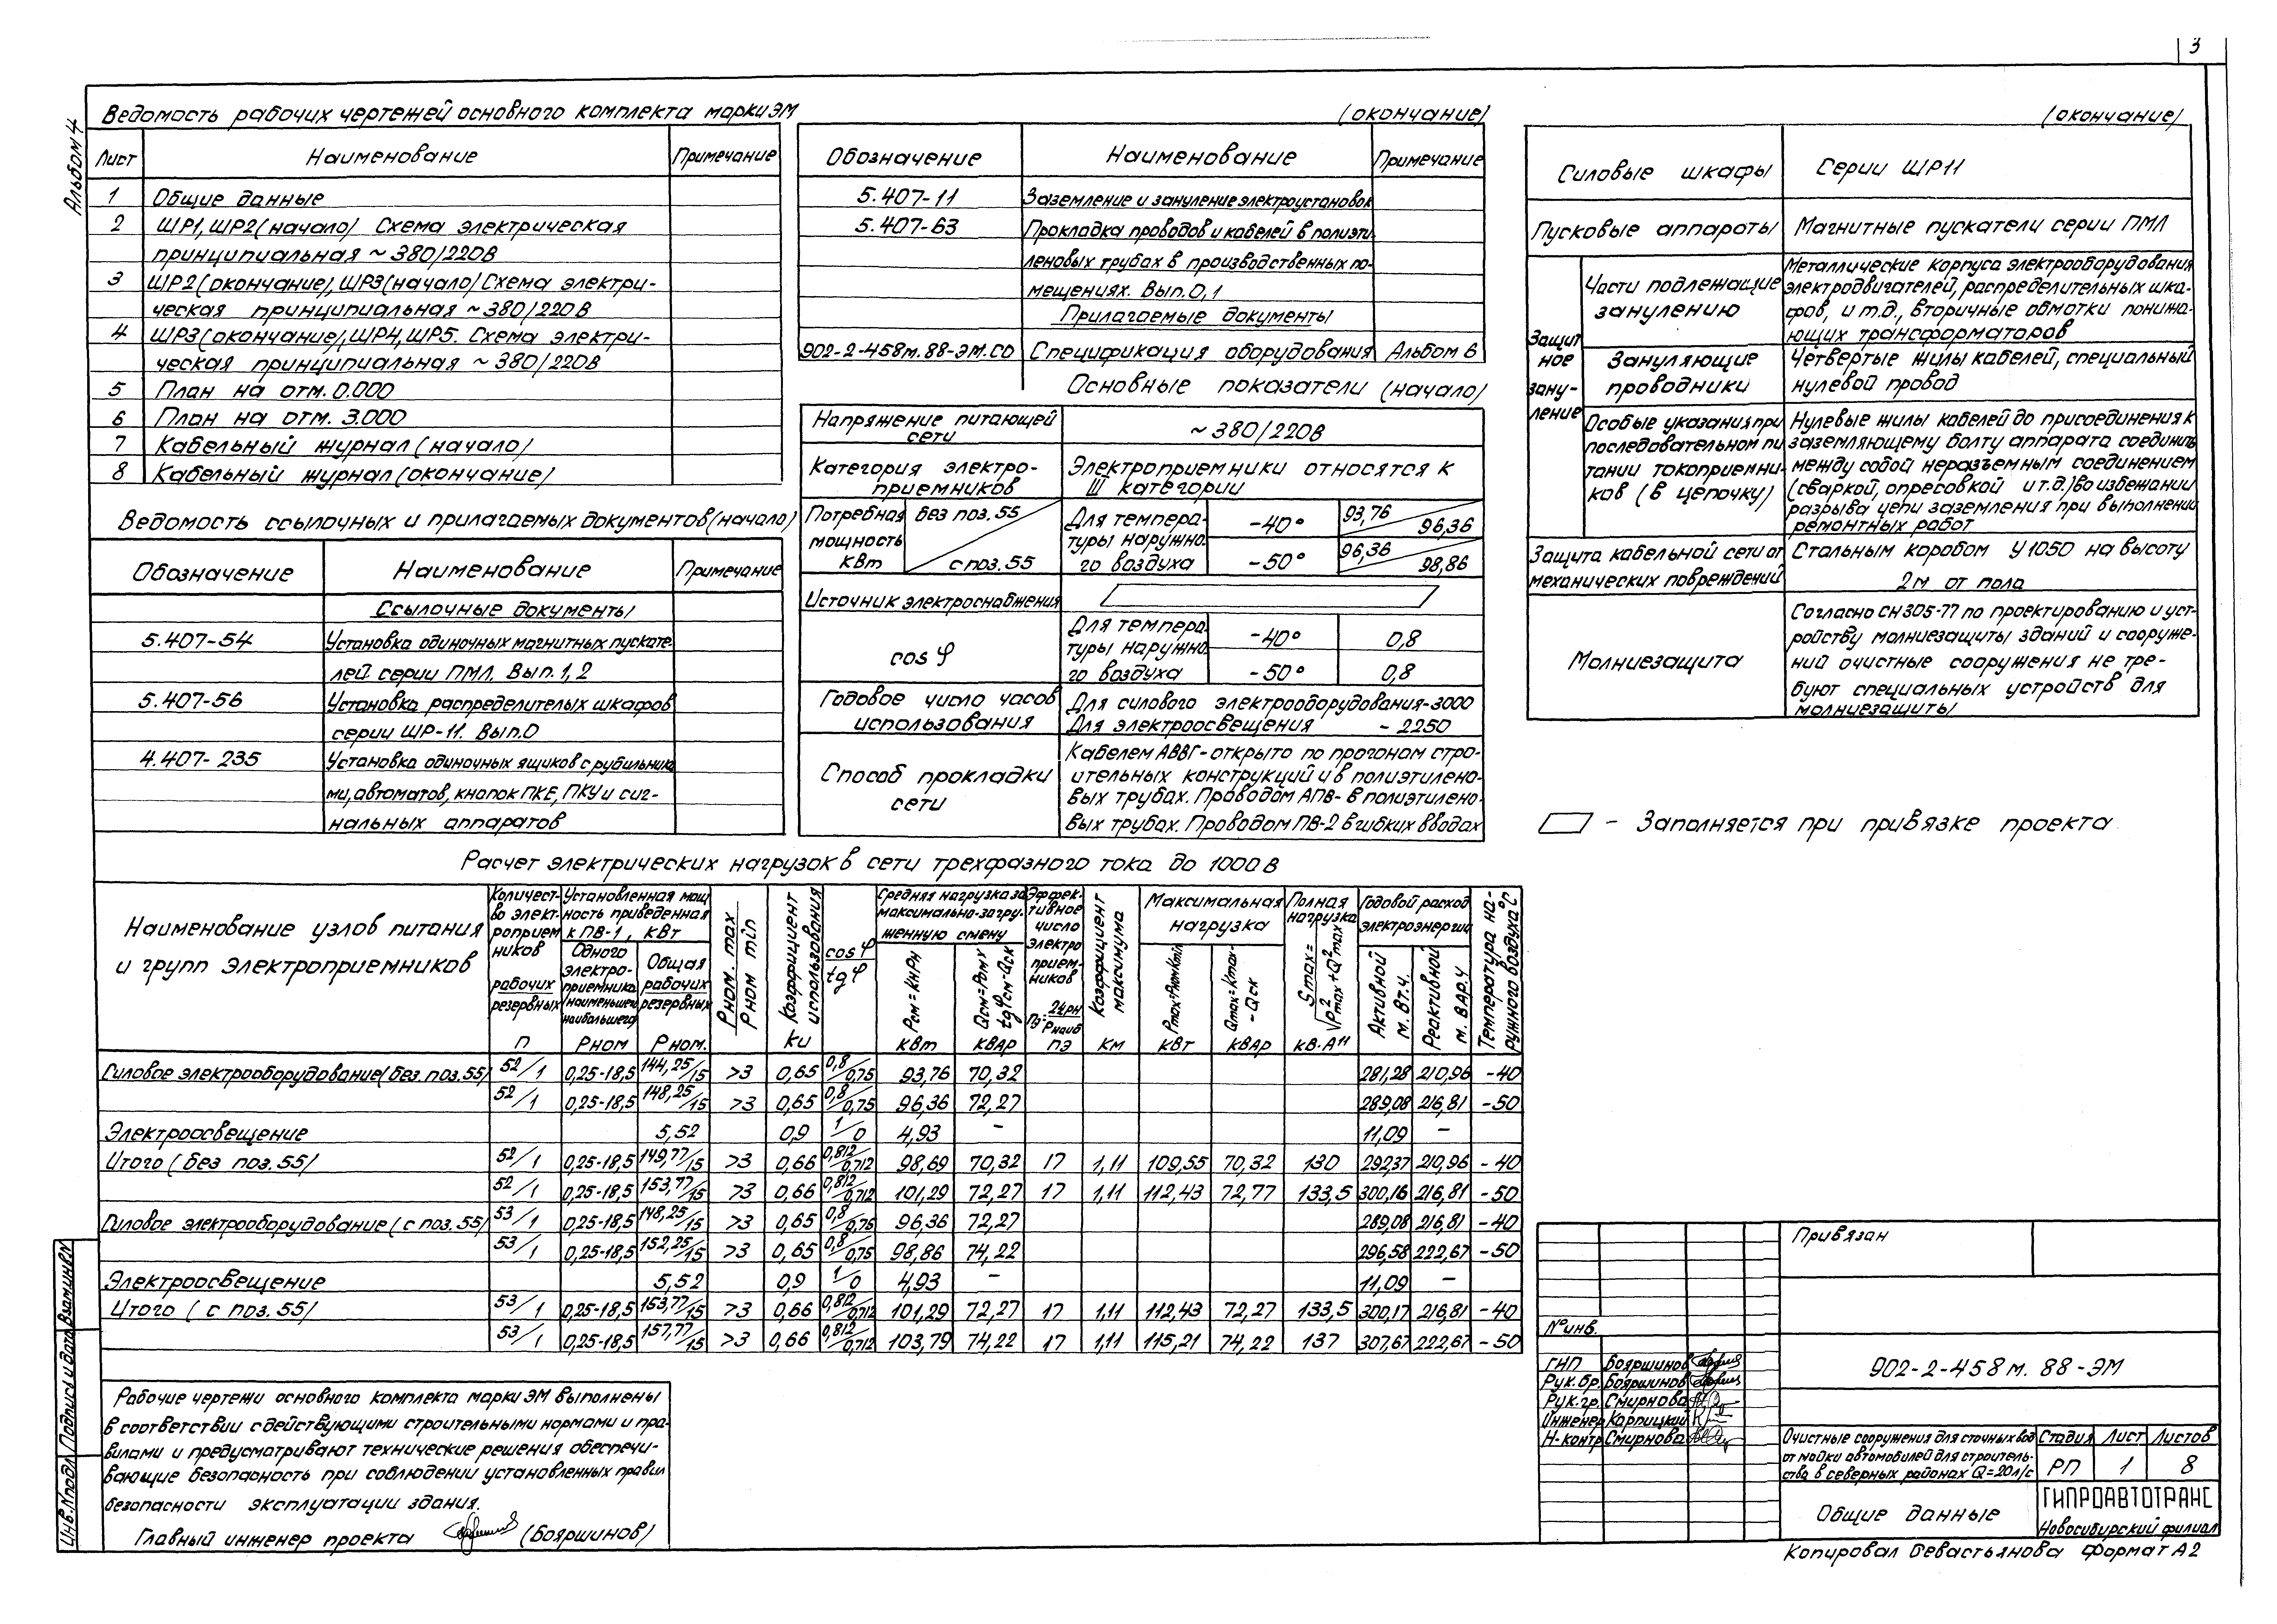 3
Альбом 4
Ведомость рабочих чертежей основного комплекта марки ЭМ
Лист Наименование Примечание
1 Общие данные
2 ШР1, ШР2 (начало) Схема электрическая
принципиальная ~380/220В
3 ШР2 (окончание), ШР3 (начало) Схема электри-
ческая принципиальная ~380/220В
4 ШР3 (окончание), ШР4, ШР5. Схема электри-
ческая принципиальная ~380/220В
5 План на отм. 0.000
6 План на отм. 3.000
7 Кабельный журнал (начало)
8 Кабельный журнал (окончание)
Ведомость ссылочных и прилагаемых документов (начало)
Обозначение Наименование Примечание
Ссылочные документы
5.407-54 Установка одиночных магнитных пускате-
лей серии ПМЛ. Вып. 1, 2
5.407-56 Установка распределителых шкафов
серии ШР-11. Вып.0
4.407-235 Установка одиночных ящиков с рубильника
ми, автоматов, кнопок ПКЕ, ПКУ и сиг-
нальных аппаратов
(окончание)
Обозначение Наименование Примечание
5.407-11 Заземление и зануление электроустановок
5.407-63 Прокладка проводов и кабелей в полиэти
леновых трубах в производственных по-
мещениях. Вып. 0, 1
Прилагаемые документы
902-2-458м.88-ЭМ.СО Спецификация оборудования Альбом 6
Основные показатели (начало)
Напряжение питающей
сети
~380/220В
Категория электро-
приемников
Электроприемники относятся к
III категории
Потребная
мощность
кВт
без поз. 55
с поз. 55
Для темпера-
туры наружно-
го воздуха
-40° 93,76 96,36
-50° 96,36 98,86
Источник электроснабжения
cos φ
Для темпера-
туры наружно-
го воздуха
-40° 0,8
-50° 0,8
Годовое число часов
использования
Для силового электрооборудования-3000
Для электроосвещения - 2250
Способ прокладки
сети
Кабелем АВВГ-открыто по прогоном стро-
ительных конструкций и в полиэтилено-
вых трубах. Проводом АПВ- в полиэтилено-
вых трубах. Проводом ПВ-2 в гибких вводах
(окончание)
Силовые шкафы Серии ШР11
Пусковые аппараты Магнитные пускатели серии ПМЛ
Защит
ное
зану-
ление
Части подлежащие
занулению
Металлические корпуса электрооборудования
электродвигателей, распределительных шка-
фов, и т.д., вторичные обмотки понижа-
ющих трансформаторов
Зануляющие
проводники
Четвертые жилы кабелей, специальный
нулевой провод
Особые указания при
последовательном пи
тании токоприемни-
ков (в цепочку)
Нулевые жилы кабелей до присоединения к
заземляющему болту аппарата соединить
между собой неразъемным соединением
(сваркой, опресовкой и т.д.) во избежании
разрыва цепи заземления при выполнении
ремонтных работ
Защита кабельной сети от
механических повреждений
Стальным коробом У1050 на высоту
2м от пола
Молниезащита
Согласно СН 305-77 по проектированию и уст-
ройству молниезащиты зданий и сооруже-
ний очистные сооружения не тре-
буют специальных устройств для
молниезащиты
- Заполняется при привязке проекта
Расчет электрических нагрузок в сети трехфазного тока до 1000 В
Наименование узлов питания
и групп электроприемников
Количест-
во элект-
роприем
ников
рабочих
резервных
n
Установленная мощ
ность приведенная
к ПВ-1, кВт
Одного
электро-
приемника
наименьшего
наибольшего
Рном
Общая
рабочих
резервных
Рном.
Рном. max
Рном min
Коэффициент
использования
Ки
cos φ
tg φ
Средняя нагрузка за
максимально-загру-
женную смену
Рсм = КиРн
кВт
кВАР
Эффек-
тивное
число
электро
прием-
ников
nэ
Коэффициент
максимума
Км
Максимальная
нагрузка
кВт
Qmax = Kmax-
- Qск
кВАР
Полная
нагрузка
Smax=
√P²max+Q²max
кВ·А
Годовой расход
электроэнергии
Активной
м. Вт.ч.
Реактивной
м. ВАР.ч
Температура на-
ружного воздуха °C
Силовое электрооборудование (без поз. 55) 52/1 0,25-18,5 144,25/15 >3 0,65 0,8/0,75 93,76 70,32 281,28 210,96 -40
52/1 0,25-18,5 148,25/15 >3 0,65 0,8/0,75 96,36 72,27 289,08 216,81 -50
Электроосвещение 5,52 0,9 1/0 4,93 - 11,09 -
Итого (без поз. 55) 52/1 0,25-18,5 149,77/15 >3 0,66 0,812/0,712 98,69 70,32 17 1,11 109,55 70,32 130 292,37 210,96 -40
52/1 0,25-18,5 153,77/15 >3 0,66 0,812/0,712 101,29 72,27 17 1,11 112,43 72,77 133,5 300,16 216,81 -50
Силовое электрооборудование (с поз. 55) 53/1 0,25-18,5 148,25/15 >3 0,65 0,8/0,75 96,36 72,27 289,08 216,81 -40
53/1 0,25-18,5 152,25/15 >3 0,65 0,8/0,75 98,86 74,22 296,58 222,67 -50
Электроосвещение 5,52 0,9 1/0 4,93 - 11,09 -
Итого (с поз. 55) 53/1 0,25-18,5 153,77/15 >3 0,66 0,812/0,712 101,29 72,27 17 1,11 112,43 72,27 133,5 300,17 216,81 -40
53/1 0,25-18,5 157,77/15 >3 0,66 0,812/0,712 103,79 74,22 17 1,11 115,21 74,22 137 307,67 222,67 -50
Рабочие чертежи основного комплекта марки ЭМ выполнены
в соответствии с действующими строительными нормами и пра-
вилами и предусматривают технические решения обеспечи-
вающие безопасность при соблюдении установленных правил
безопасности эксплуатации здания.
Главный инженер проекта (Бояршинов)
Инв.№подл Подпись и дата Взам.инв№
Привязан
№инв.
ГИП Бояршинов
Рук. бр. Бояршинов
Рук. гр. Смирнова
Инженер Карпицкий
Н-контр Смирнова
902-2-458м. 88-ЭМ
Очистные сооружения для сточных вод
от мойки автомобилей для строитель-
ства в северных районах Q=20л/с
Стадия Лист Листов
РП 1 8
Общие данные
ГИПРОАВТОТРАНС
Новосибирский филиал
Копировал Севастьянова формат А2